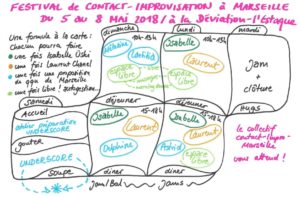 FESTIVAL de CONTACT-IMPROVISATION à MARSEILLE
DU 5 au 8 MAI 2018 / à la Déviation - l'Estaque
Une formule à la carte :
chacun pourra faire
une fois Isabelle Uski
une fois Laurent Chanel
une fois une proposition
de qqn de Marseille
une fois libre / autogestion
dimanche
10h-13h
Isabelle
Laurent
Espace
libre
lundi
10h-13h
Isabelle
Laurent
Espace
libre
mardi
jam
+
clôture
HUGS
samedi
Accueil
atelier préparation
UNDERSCORE
gouter
UNDERSCORE
Soupe
déjeuner
15-18h
Isabelle
Laurent
Delphine
Espace
libre
diner
jam/Bal
déjeuner
15-18h
Isabelle
Laurent
Astrid
Espace
libre
diner
jams
le collectif
contact-impro-
Marseille
vous attend !